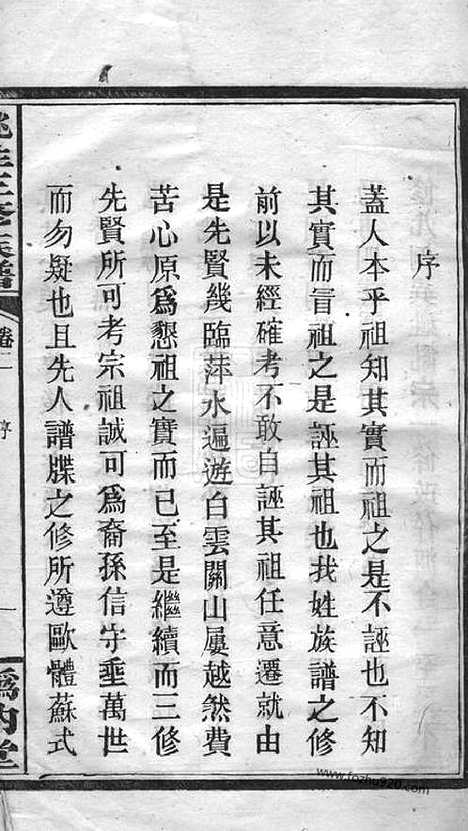 序
蓋人本乎祖知其實而祖之是不誣也不知
其實而冒祖之是誣其祖也我姓族譜之修
前以未經確考不敢自誣其祖任意遷就由
是先賢幾臨萍水遍遊白雲關山屢越煞費
苦心原爲懇祖之實而已至是繼續而三修
先賢所可考宗祖誠可爲裔孫信守垂萬世
而勿疑也且先人譜牒之修所遵歐體蘇式
姓三修族譜
卷二
序
一
爲內堂
www.fozhu920.com